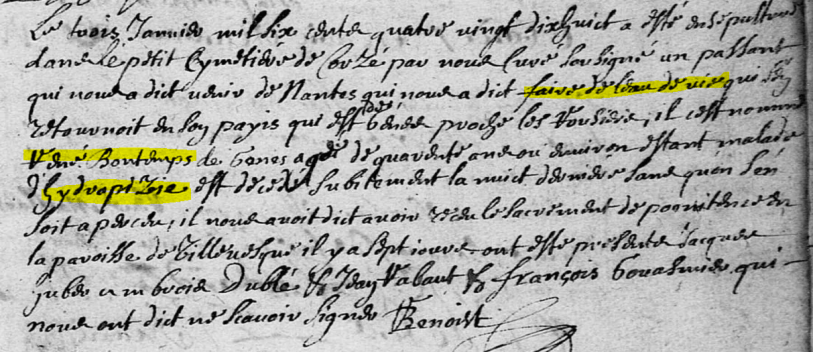 Le trois Janvier mil six cents quatre vingt dixhuict a esté ensepulturé
dans le petit Cymetiere de Corzé par nous Curé soussigné un passant
qui nous a dict venir de Nantes qui nous a dict faire de leau de vie qui sen
retournoit en son payis qui est de Genes proche les Rosiers, il cest nommé
René Bontemps de Genes agé de quarente ans ou environ estant malade
dhydropizie est decedé subitement la nuict derniere sans quon son
soit apercu, il nous avoit dict avoir receu le sacrement de poenitence en
la paroisse de Villevesque il y a sept jours ont esté presents Jacques
Juber ambrois Dublé & Jean Rabaut & françois qui
nous ont dict ne scavoir signer Benoist